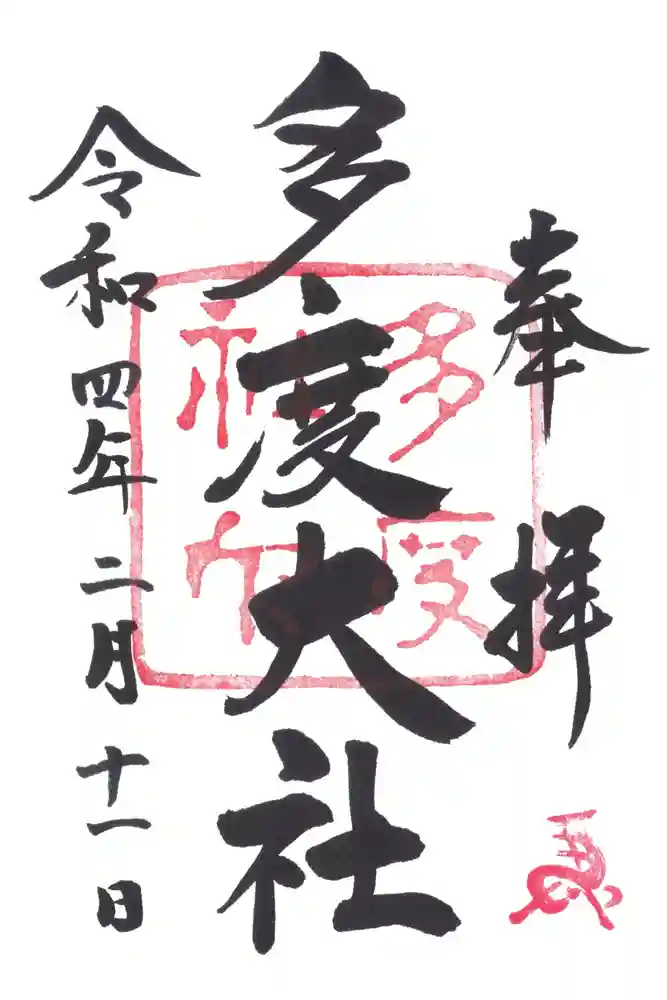 奉拝
多度大社
令和四年二月十一日
多度
社印